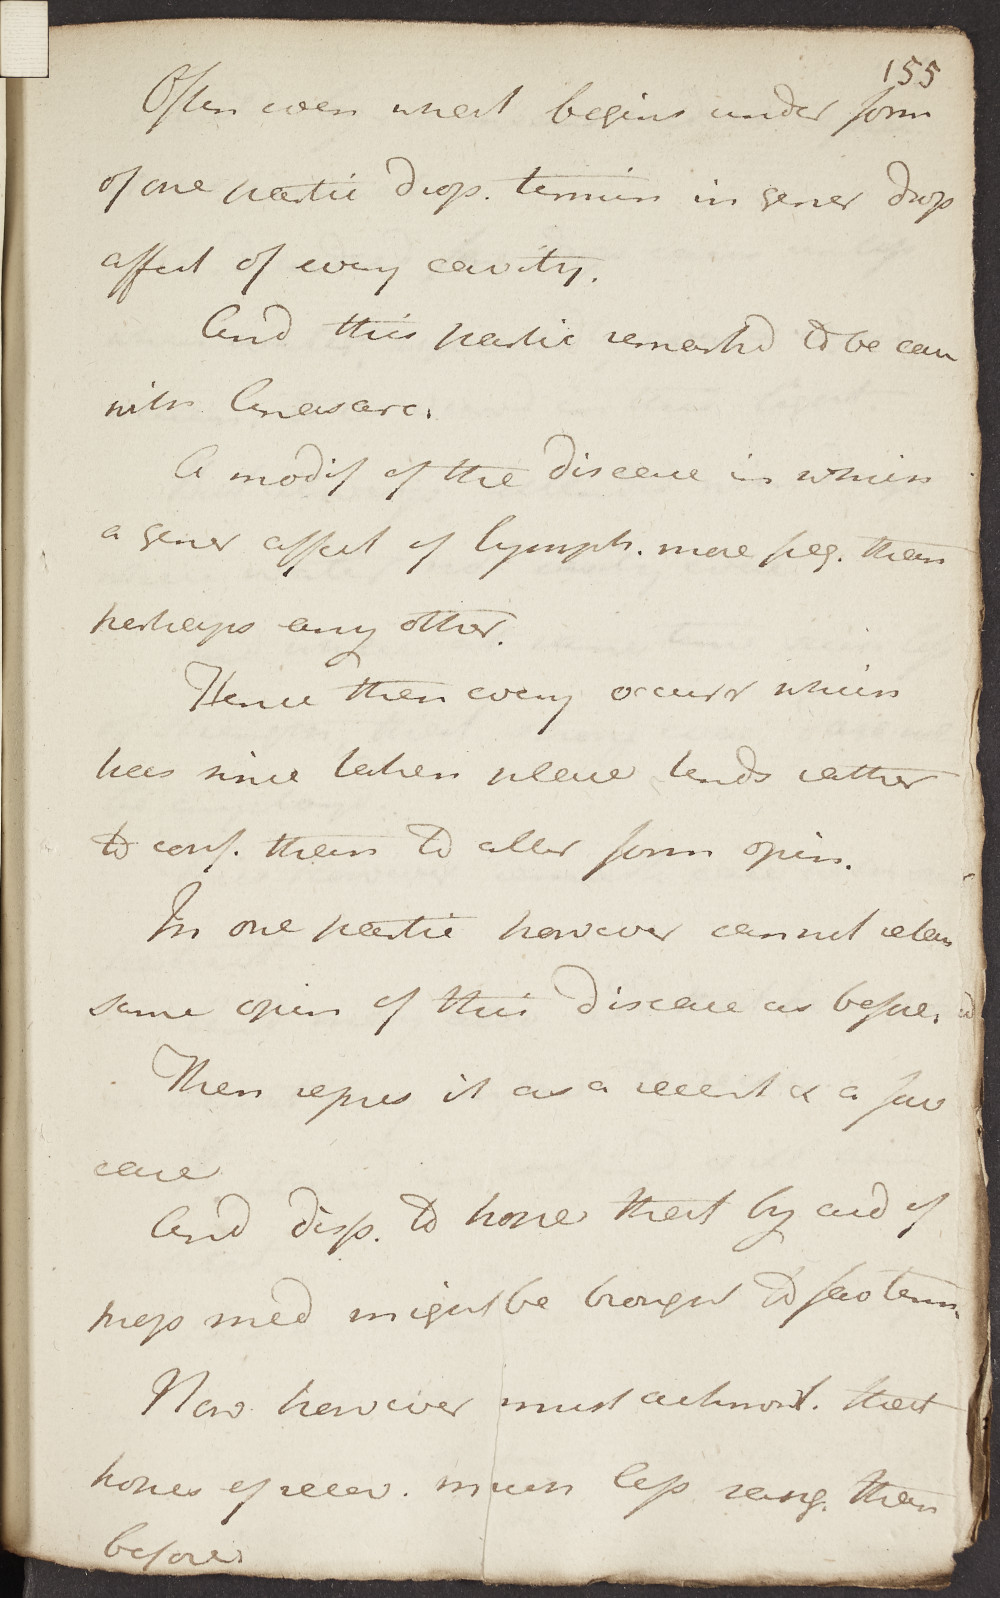 155
Often even what begins under form
of one partic drop. termin in gener drop
affect of every cavity.
And this partic remarkd to be case
with Anasarc.
A modif of the disease in which
a gener affect of lymph. more freq. than
perhaps any other.
Hence then every occurr which
has since taken place tends rather
to conf. than to alter form opin.
In one partic however cannot retain
same opin of this disease as before.
Then repres it as a recent & a fav
case
And disp. to hope that by aid of
prop med might be brought to fav term.
Now however must acknowl. that
hopes of recov. much less sang. than
before